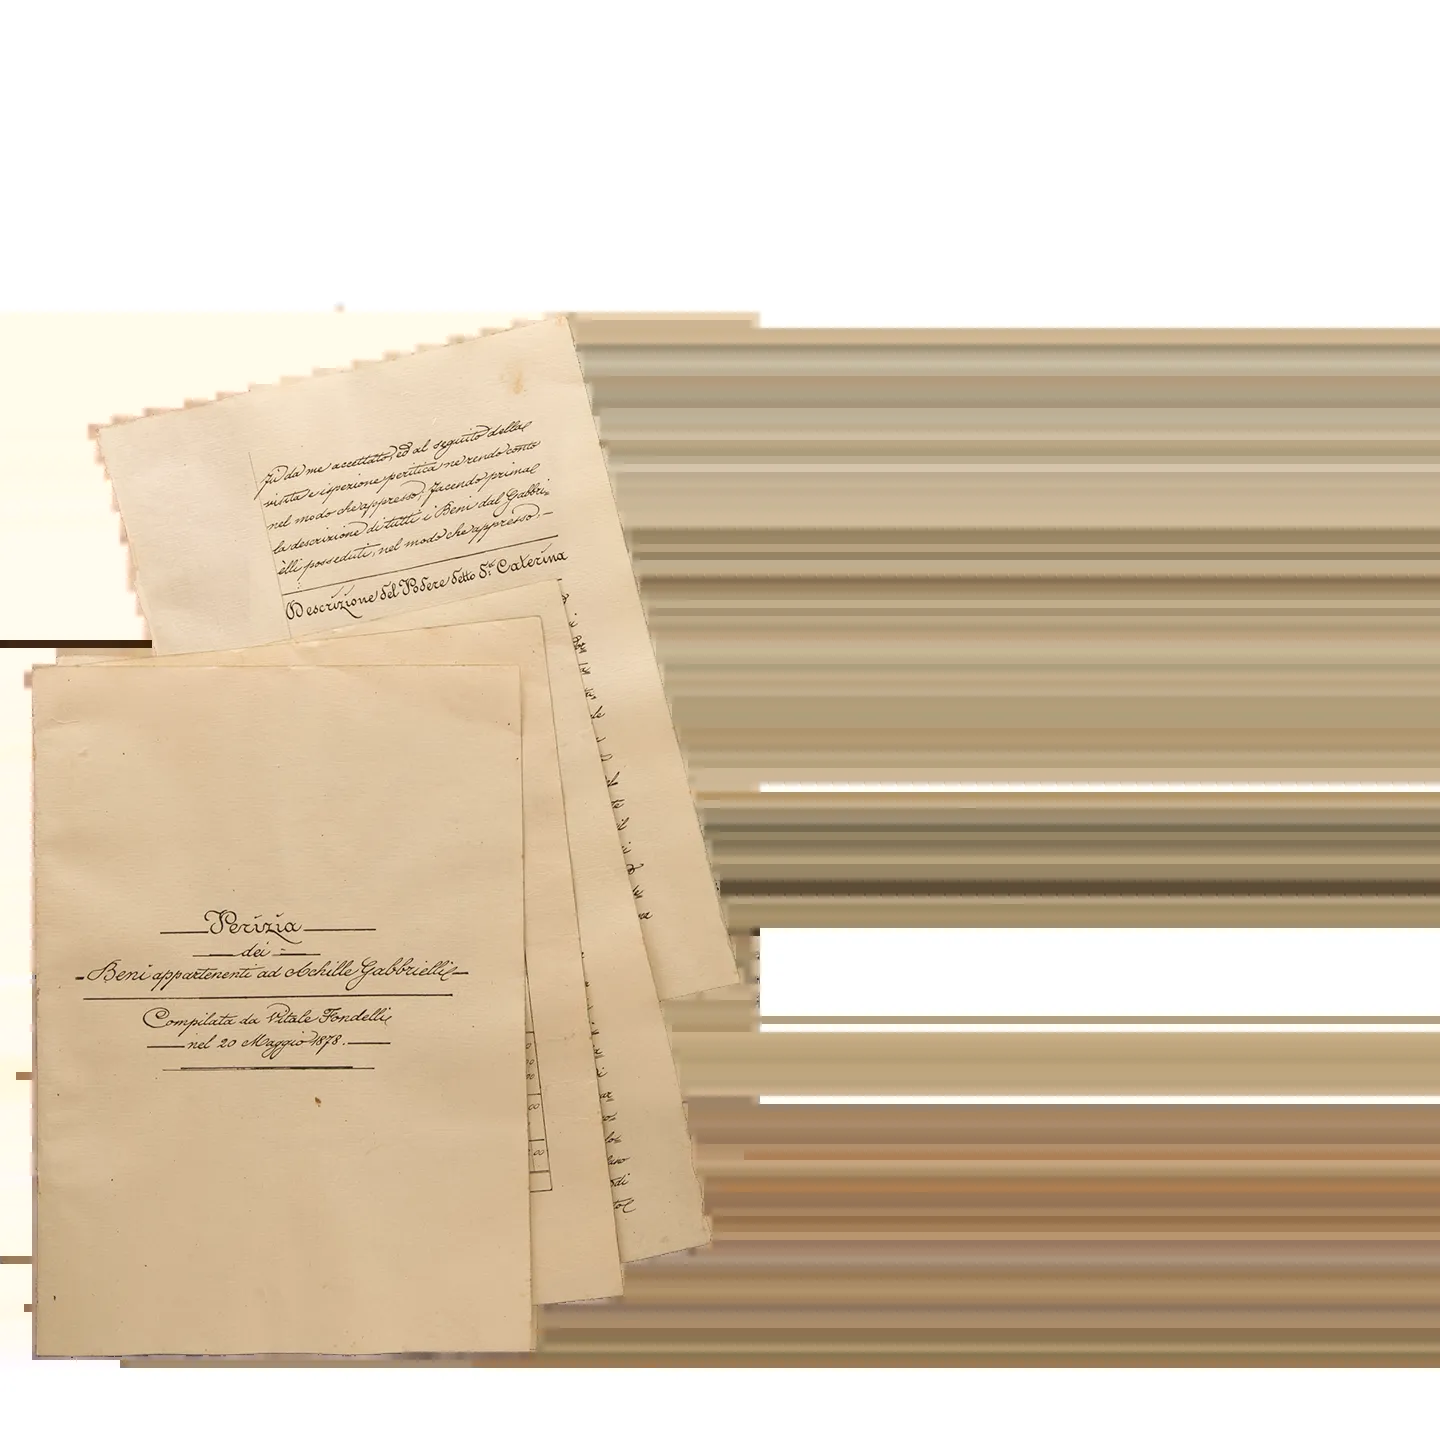 Fù da me accettato, ed al seguito della
visita e ispezione peritica ne rendo conto
nel modo che appresso; facendo prima
la descrizione di tutti i Beni dal Gabbri=
elli posseduti, nel modo che appresso.—
Descrizione del Podere detto S.ta Caterina
Perizia
dei
Beni appartenenti ad Achille Gabbrielli
Compilata da Vitale Fondelli
nel 20 Maggio 1878.